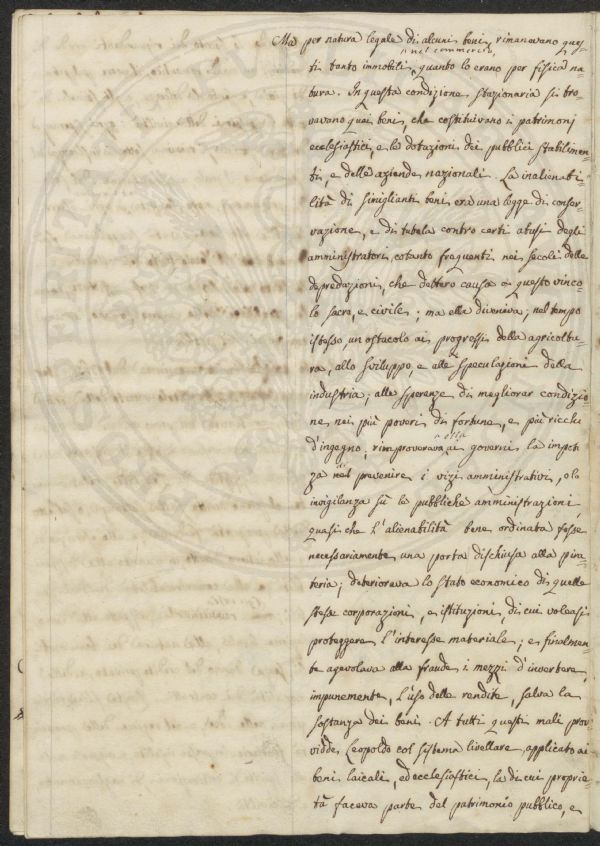 Ma per natura legale di alcuni beni, rimanevano ques=
nel commercio,
ti tanto immobili quanto lo erano per fisica na=
tura. In questa condizione stazionaria si tro=
vavano quei beni, che costituivano i patrimonj
ecclesiastici, e le dotazioni dei pubblici stabilimen=
ti, e delle aziende nazionali. La inalienabi=
lità di simiglianti beni era una legge di conser=
vazione, e di tutela contro certi abusi degli
amministratori, cotanto frequenti nei secoli delle
depredazioni, che dettero causa a questo vinco=
lo sacro, e civile; ma ella diveniva, nel tempo
istesso, un ostacolo ai progressi della agricoltu=
ra, allo sviluppo, e alle speculazioni della
industria; alle speranze di megliorar condizio
ne nei più poveri di fortune, e più ricchi
d'ingegno; rimproverava ai governi la impoten=
za nel prevenire i vizi amministrativi, o la
invigilanza sù le pubbliche amministrazioni,
quasi che l'alienabilità bene ordinata fosse
necessariamente una porta dischiusa alla pira=
teria; deteriorava lo stato economico di quelle
stesse corporazioni, e istituzioni, di cui voleasi
proteggere l'interesse materiale; e finalmen=
te agevolava alla fraude i mezzi d'invertere
impunemente, l'uso delle rendite, salva la
sostanza dei beni. A tutti questi mali prov=
vidde Leopoldo col sistema livellare applicato ai
beni laicali, ed ecclesiastici, la di cui proprie=
tà faceva parte del patrimonio pubblico, e